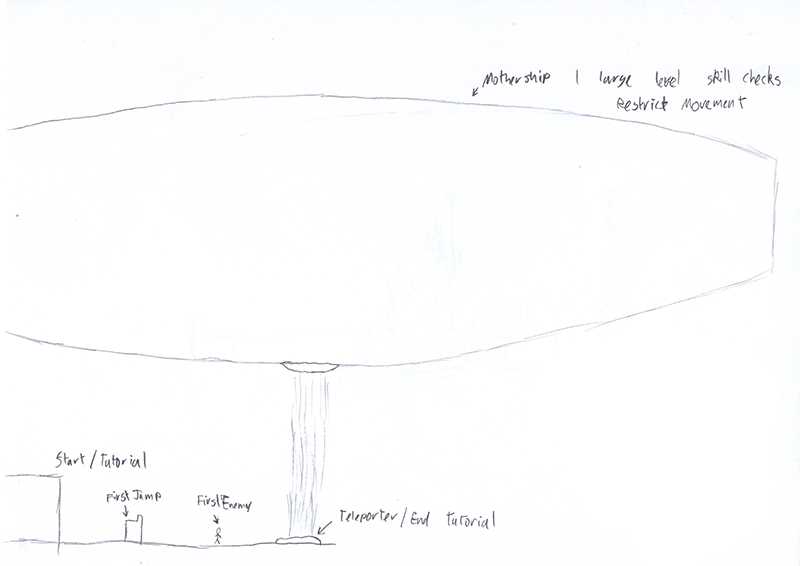 Mothership 1 large level skill checks
Restrict Movement
Start/Tutorial
First Jump
First Enemy
Teleporter/End Tutorial